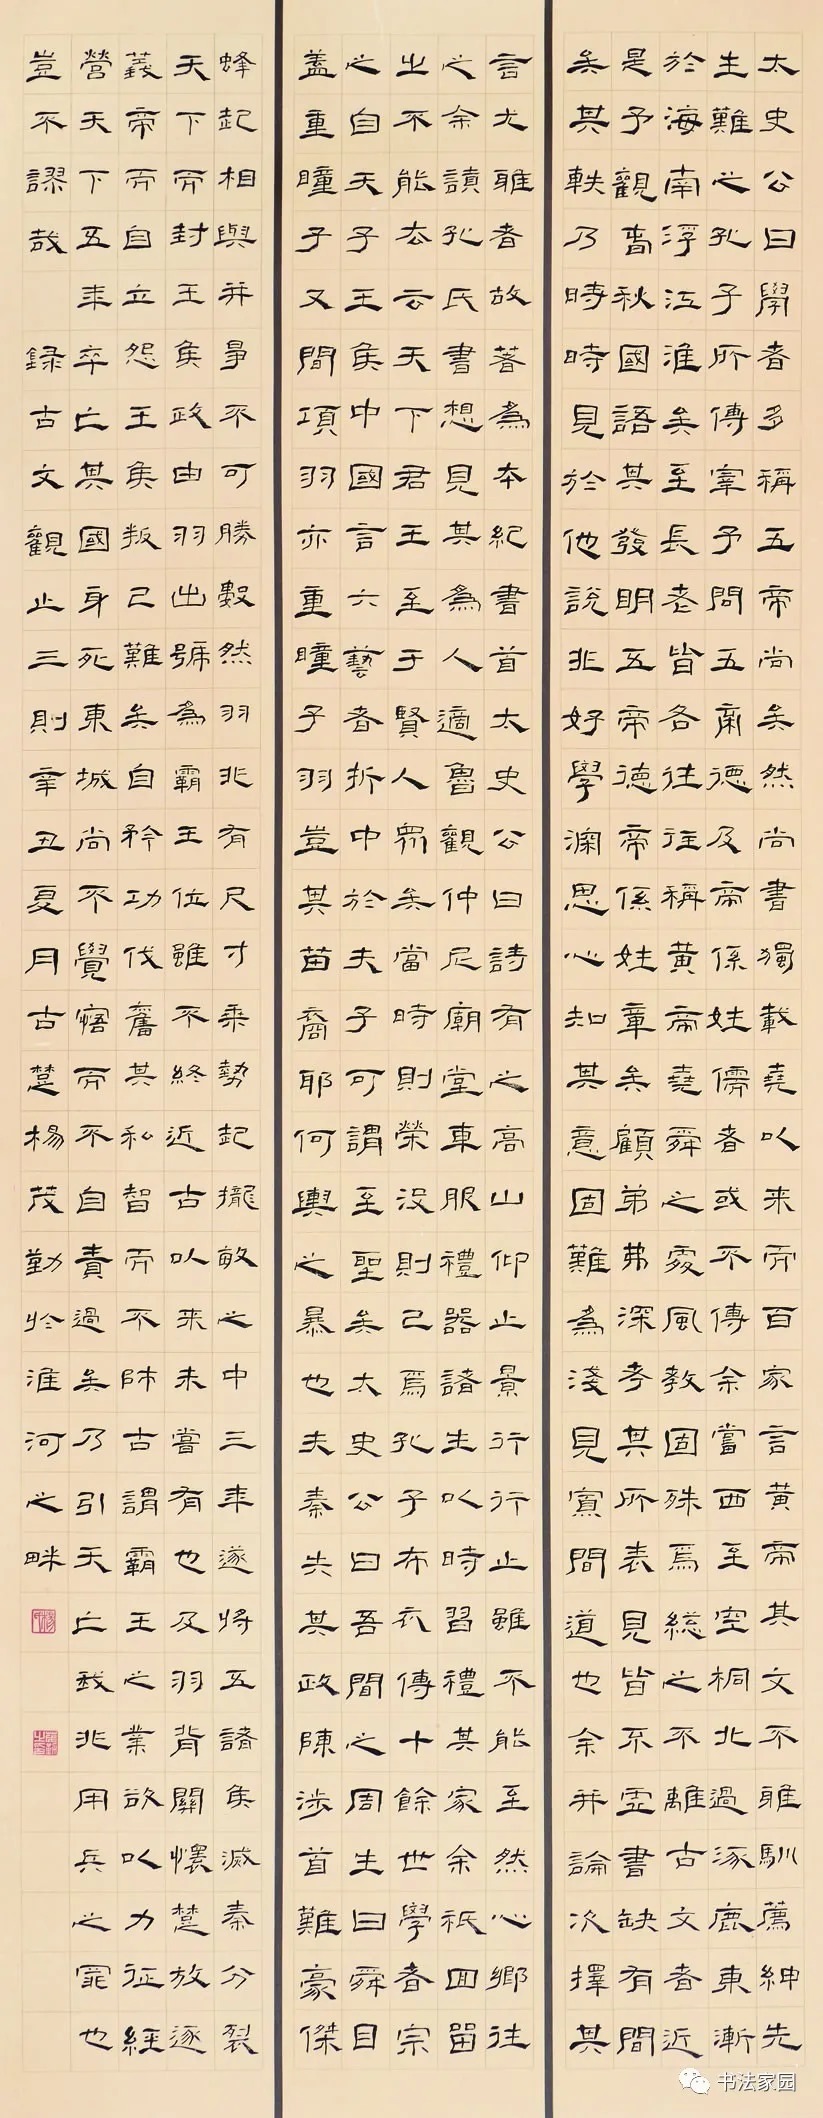 太史公曰學者多稱五帝尚矣然尚書獨載堯以来而百家言黃帝其文不雅馴薦紳先
生難之孔子所傳宰予問五帝德及帝係姓儒者或不傳余嘗西至空桐北過涿鹿東漸
於海南浮江淮矣至長老皆各往往稱黃帝堯舜之處風教固殊焉總之不離古文者近
是予觀春秋國語其發明五帝德帝係姓章矣顧弟弗深考其所表見皆不虛書缺有間
矣其軼乃時時見於他說非好學深思心知其意固難為淺見寡聞道也余并論次擇其
言尤雅者故著為本紀書首太史公曰詩有之高山仰止景行行止雖不能至然心鄉往
之余讀孔氏書想見其為人適魯觀仲尼廟堂車服禮器諸生以時習禮其家余祗回留
之不能去云天下君王至于賢人眾矣當時則榮沒則已焉孔子布衣傳十餘世學者宗
之自天子王侯中國言六藝者折中於夫子可謂至聖矣太史公曰吾聞之周生曰舜目
蓋重瞳子又聞項羽亦重瞳子羽豈其苗裔耶何興之暴也夫秦失其政陳涉首難豪傑
蜂起相與并爭不可勝數然羽非有尺寸乘勢起隴畝之中三年遂將五諸侯滅秦分裂
天下而封王侯政由羽出號為霸王位雖不終近古以来未嘗有也及羽背關懷楚放逐
義帝而自立怨王侯叛己難矣自矜功伐奮其私智而不師古謂霸王之業欲以力征經
營天下五年卒亡其國身死東城尚不覺寤而不自責過矣乃引天亡我非用兵之罪也
豈不謬哉 錄古文觀止三則辛丑夏月古楚楊茂勤於淮河之畔
书法家园